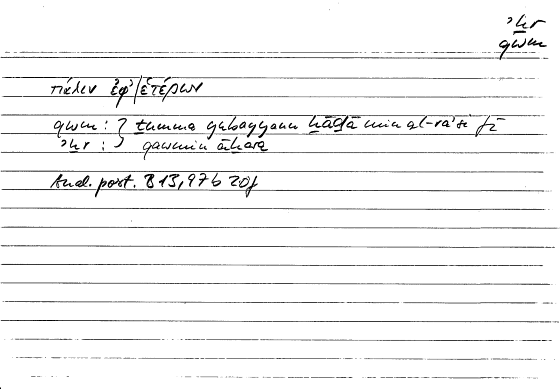 ʾḫr
qwm
πάλιν ἐφ' / ἑτέρων
qwm : } ṯumma yubayyanu hāḏā min al-raʾsi fī
ʾḫr : } qawmin āḫara
Anal. post. B 13, 97 b 20f